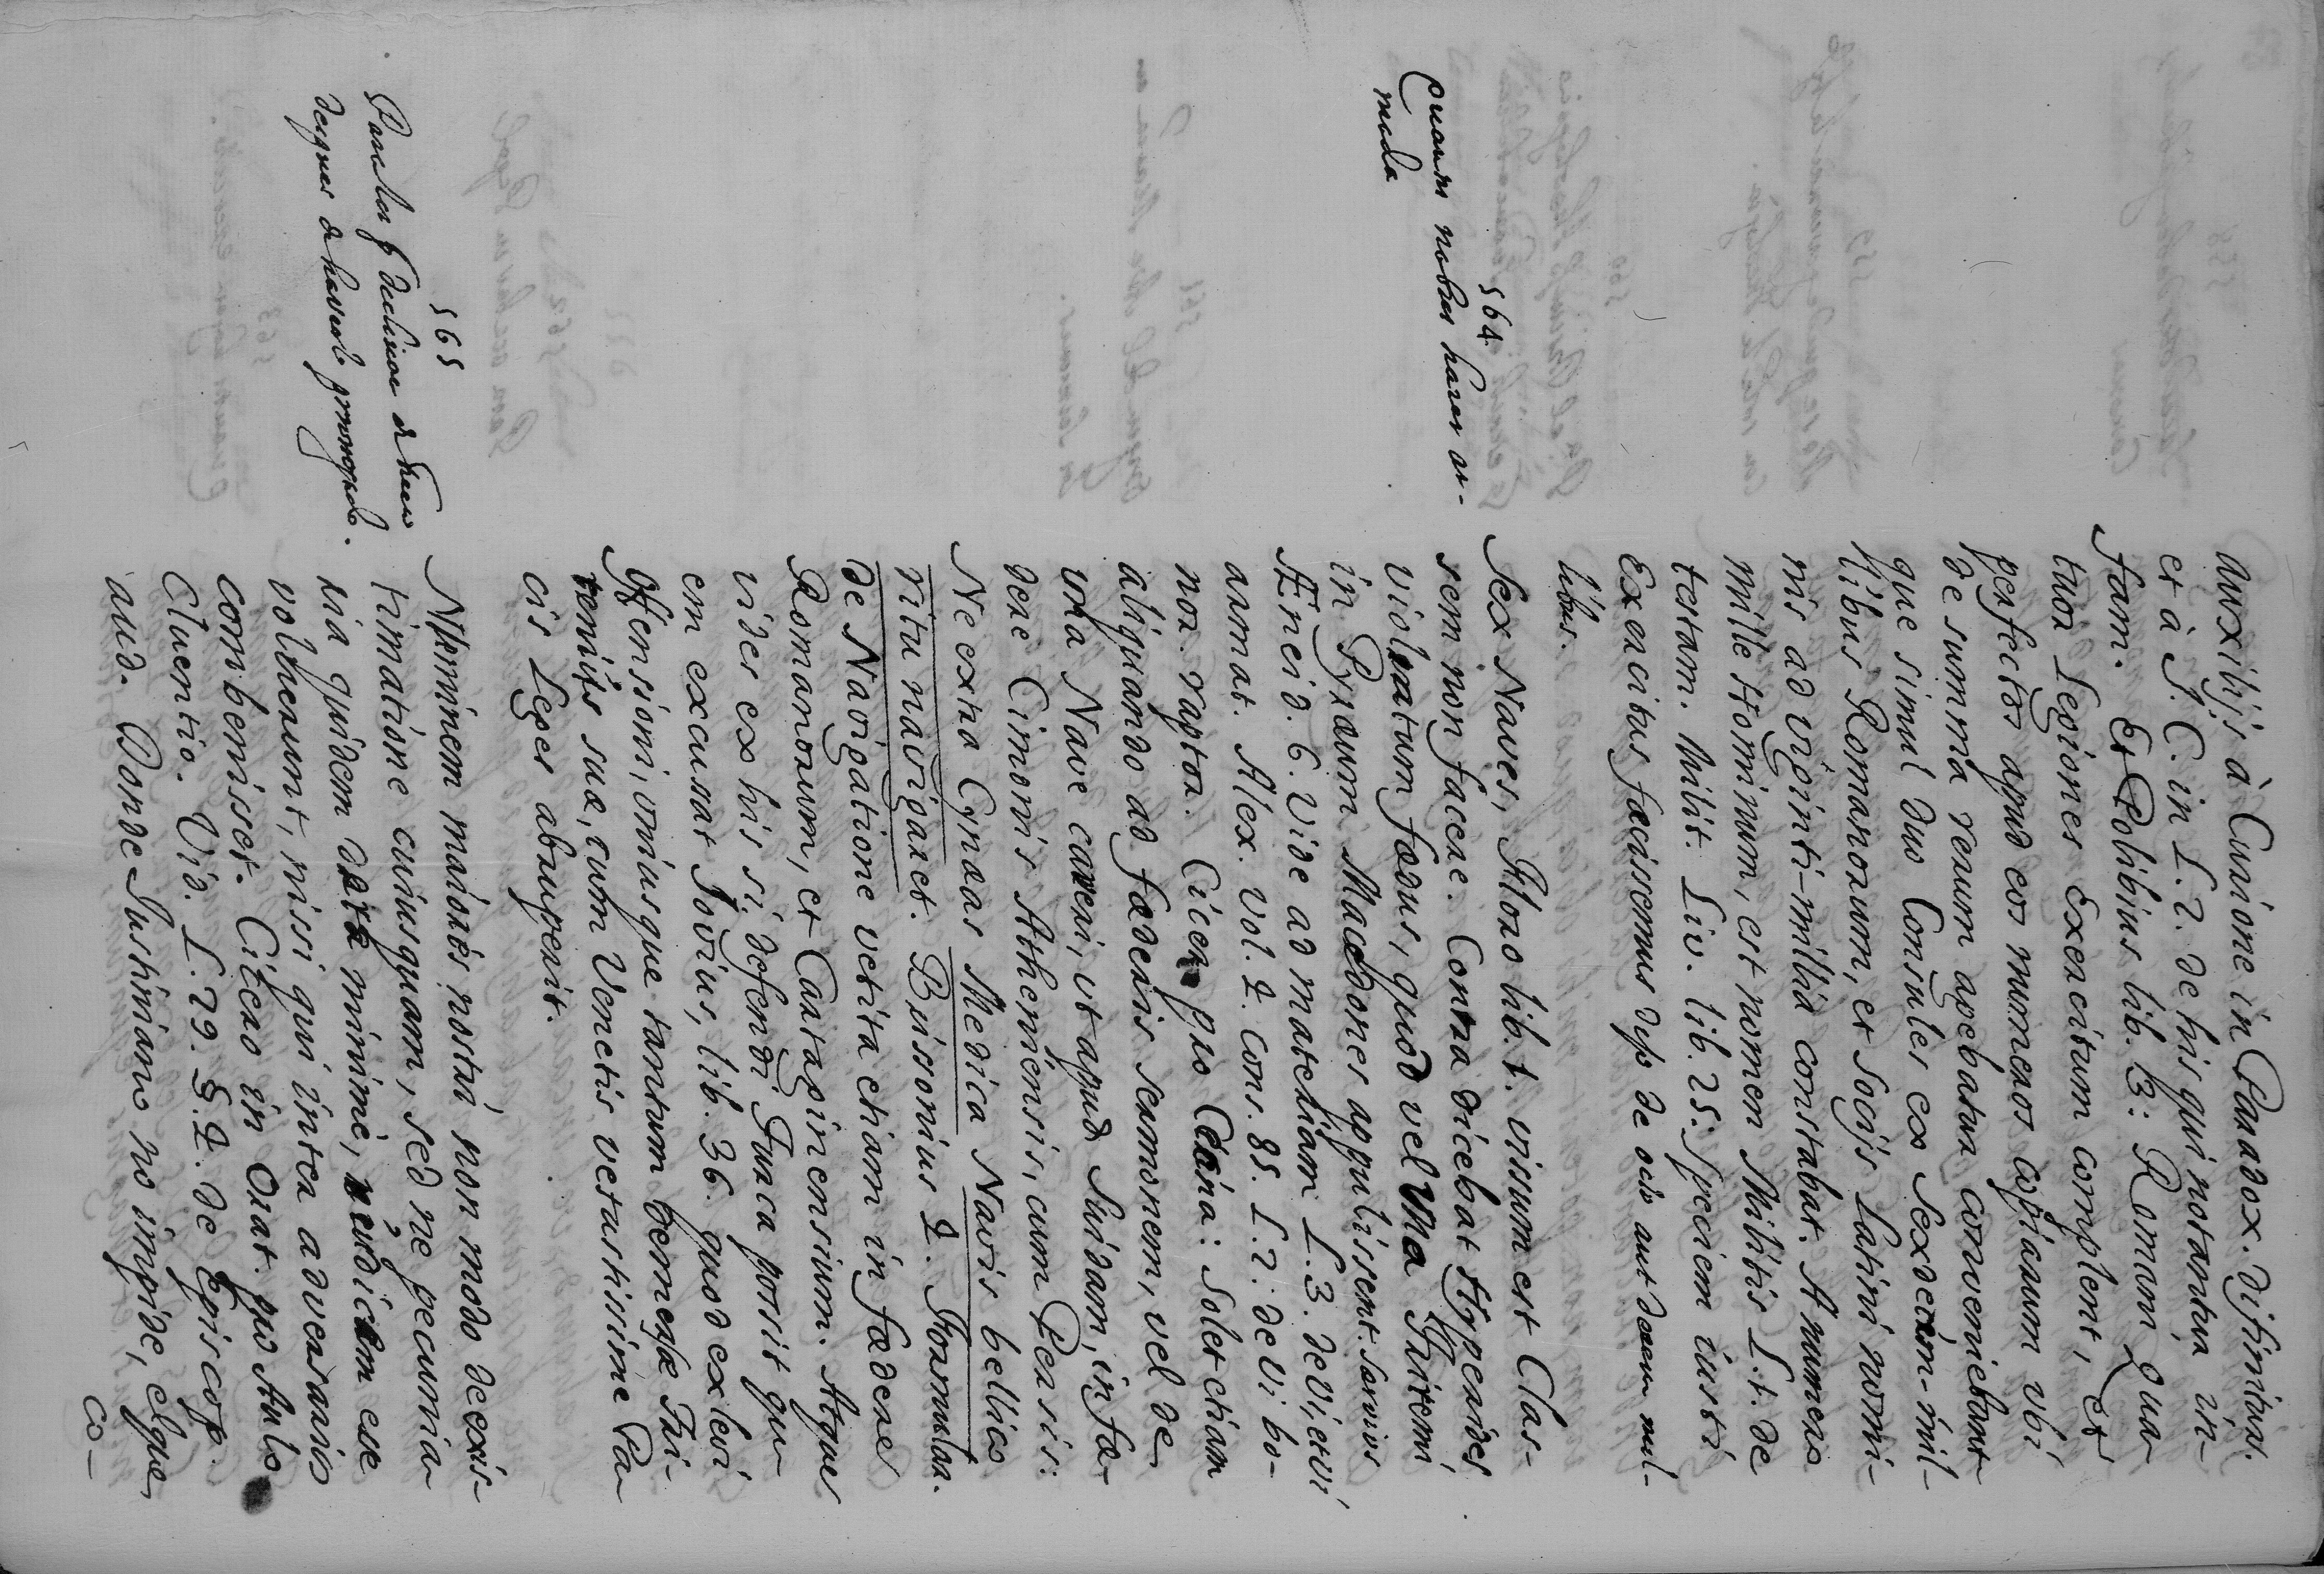 auxilijs à Curione in Paradox. difinitur.
et à J. C. in L. 2. de his qui notantur in-
fam. Et Polibius lib. 3: Romani qua-
tuor Legiones Exercitum complent, et
perfectos apud eos numeros copiarum ubi
de summa rerum agebatur conveniebant-
que simul duo Consules ex sexdecim-mil-
libus Romanorum, et Socijs Latini nomi-
nis ad viginti-millia constabat. A numero
mille Hominum, est nomen Militis L. 1. de
testam. Milit. Liv. lib. 25. Speciem iusti
Exercitus fecissemus dyo de octo aut decem mil-
libus.
564.
Quam nobes haver ar-
mada
Sex Naves, Floro lib. 1. visum est Clas-
sem non facere. Contra dicebat Hypenides
violatum foedus, quod vel una Triremi
in Pyraeum Macedones appulissent. Servius
Æneid. 6. Vide ad materiam L. 3. de Vi, et vi
armat. Alex. vol. 4. cons. 85. L. 2. de Vi bo-
nor. raptor. Cicer. pro Cecina: Solet etiam
aliquando ad foederis sermonem, vel de
una Nave caveri, ut apud Suidam, in foe-
dere Cimonis Atheniensis, cum Persis:
Ne extra Cyneas Medica Navis bellico
ritu navigaret. Brissonius 4. Formular.
De Navigatione vetita etiam in foedere
Romanorum, et Cartaginensium. Atque
vides ex his si defendi Furca possit qu-
em excusat Jovius, lib. 36. quod ex levi
offensioni, uniusque tantum
suae, cum Venetis vetustissime Pa-
cis Leges abruperit.
565
Neminem maiores nostri, non modo de exis-
timatione cuiusquam, sed ne pecunia-
ria quidem de re minimè, iudicem esse
voluerunt, nissi qui inter adversarios
combenisset. Cicero in Orat. pro Aulo
Cluentio. Vid. L. 29. §. 4. de Episcop.
aud. Donde Justiniano no impide, el que
co-